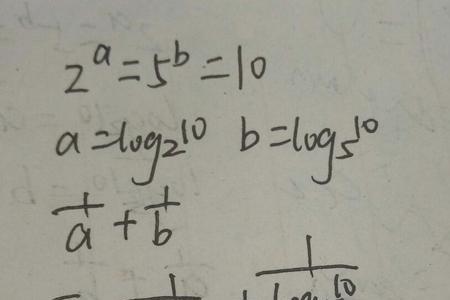 2^a = 5^b = 10
a = log₂10 b = log₅10
1/a + 1/b